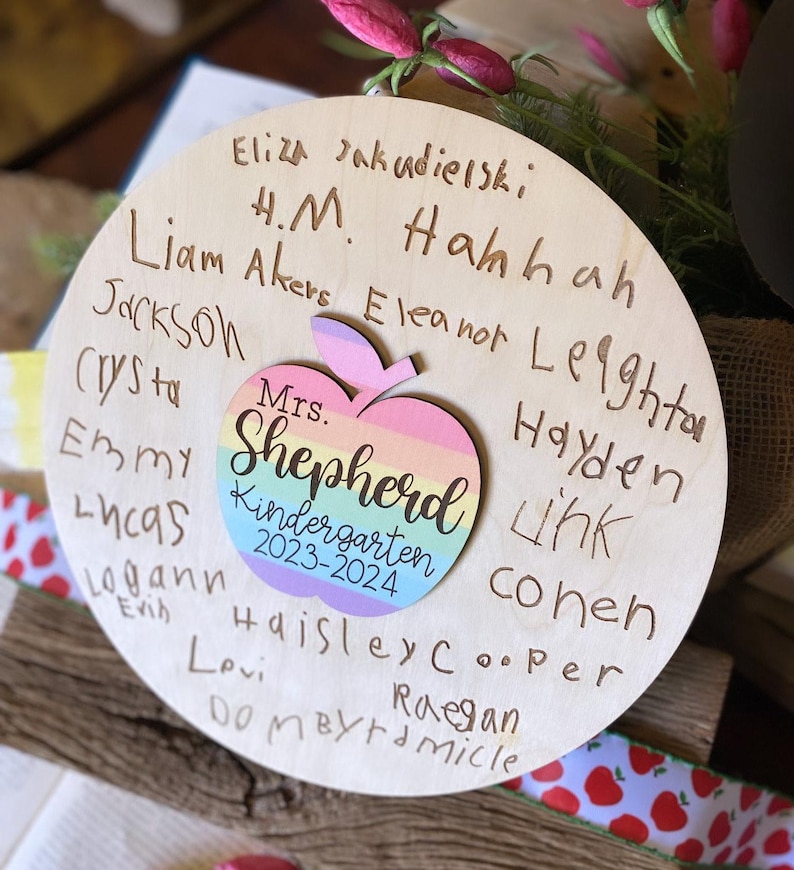 Eliza Jakudielski
H.M. Hannah
Liam Akers
Eleanor
Jackson
Leighton
Crysta
Hayden
Emmy
Mrs.
Shepherd
Kindergarten
2023-2024
Link
Lucas
Cohen
Logann
Erin
Haisley Cooper
Levi
Raegan
Dom Byrd
micle